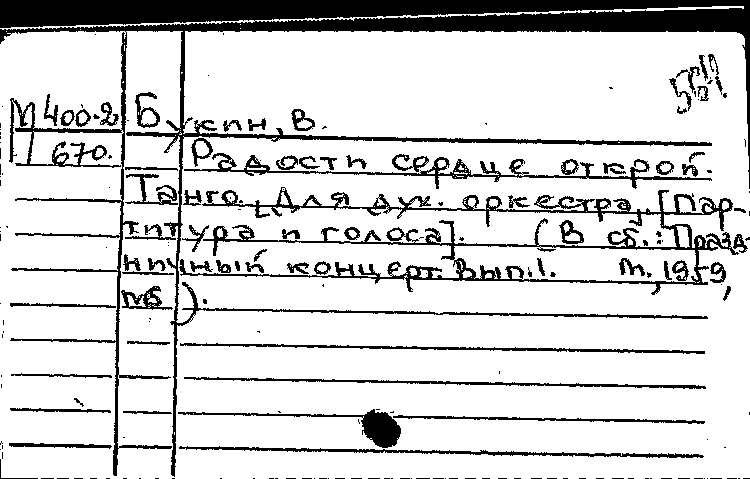 564
М 400-2 Букин, В.
670. Радости сердце открой.
Танго. [Для дух. оркестра]. [Пар-
титура и голоса]. (В сб.: Празд-
ничный концерт. Вып. 1. М., 1959,
№6).